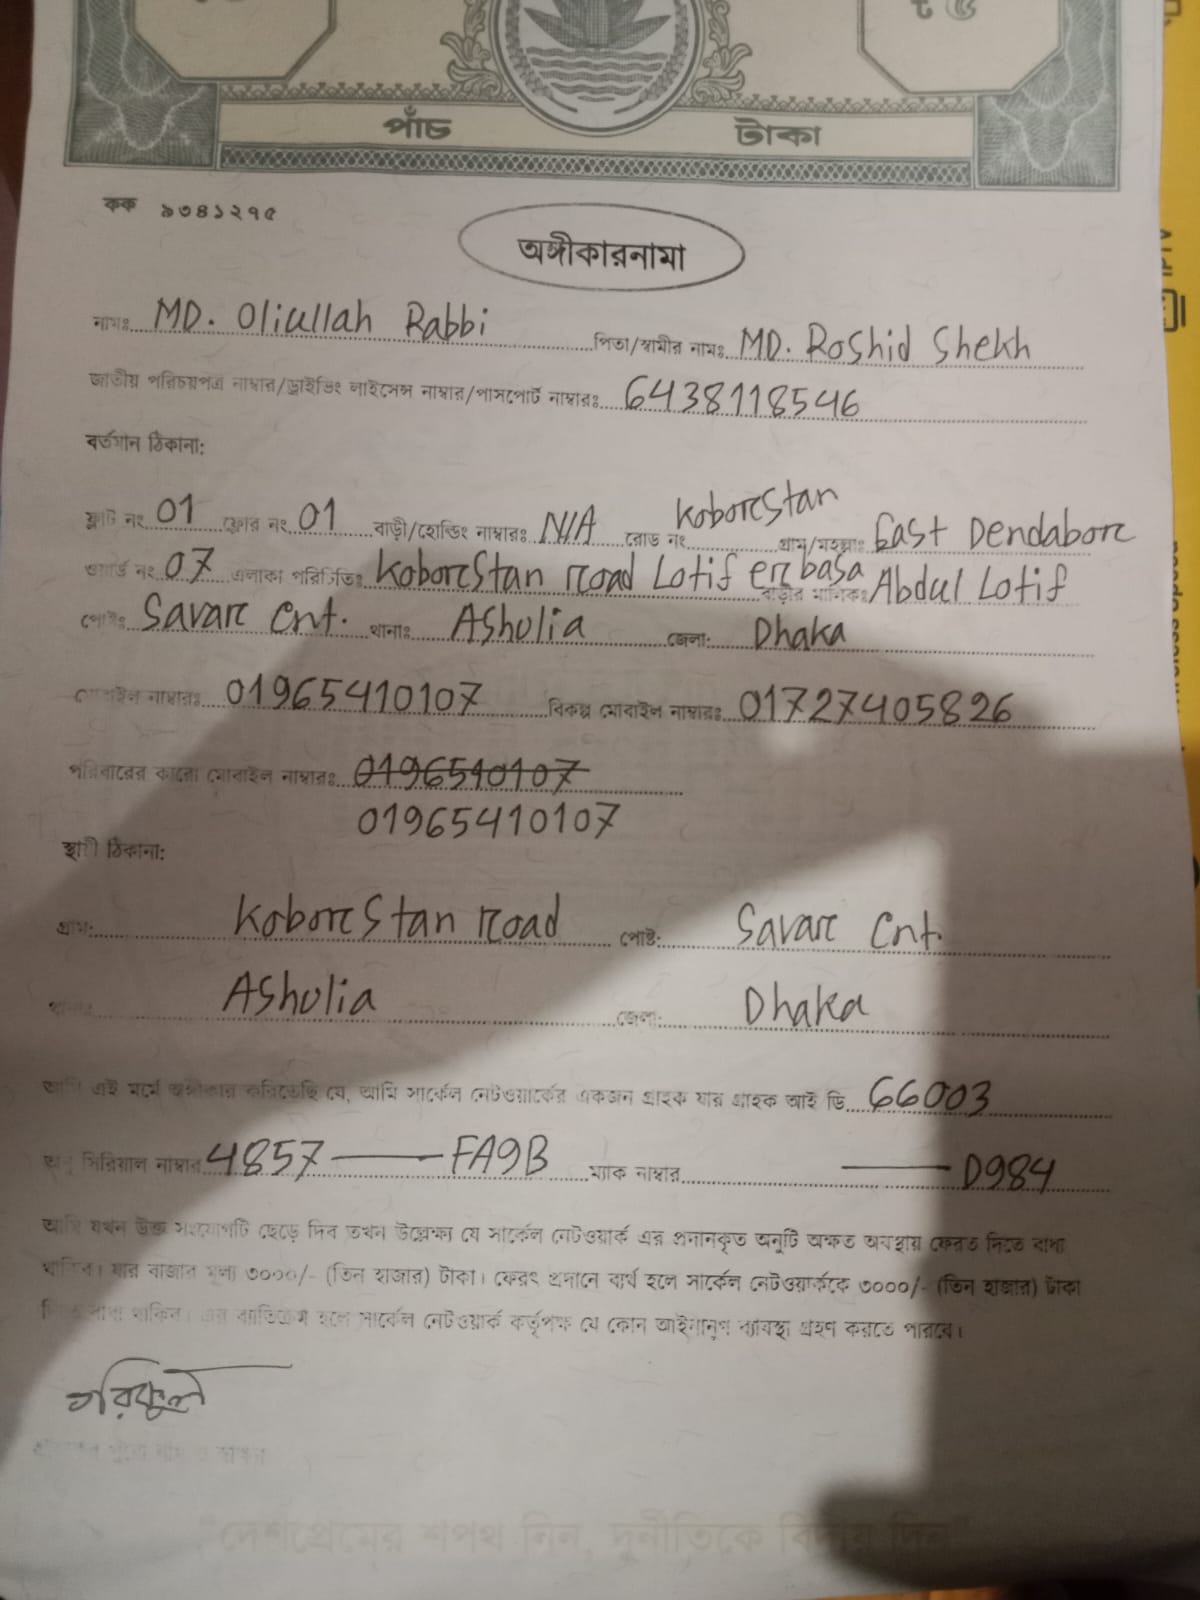 ৳ ৫
পাঁচ টাকা
কক ৯৩৪১২৭৫
অঙ্গীকারনামা
নামঃ MD. Oliullah Rabbi পিতা/স্বামীর নামঃ MD. Roshid Shekh
জাতীয় পরিচয়পত্র নাম্বার/ড্রাইভিং লাইসেন্স নাম্বার/পাসপোর্ট নাম্বারঃ 6438118546
বর্তমান ঠিকানা:
ফ্লাট নং 01 ফ্লোর নং 01 বাড়ী/হোল্ডিং নাম্বারঃ N/A রোড নং Koborstan গ্রাম/মহল্লাঃ East Dendabor
ওয়ার্ড নং 07 এলাকা পরিচিতিঃ Koborstan road Lotif er basa বাড়ীর মালিকঃ Abdul Lotif
পোষ্টঃ Savar Cnt. থানাঃ Ashulia জেলা: Dhaka
মোবাইল নাম্বারঃ 01965410107 বিকল্প মোবাইল নাম্বারঃ 01727405826
পরিবারের কারো মোবাইল নাম্বারঃ 0196540107
01965410107
স্থায়ী ঠিকানা:
গ্রাম: Koborstan road পোষ্ট: Savar Cnt.
থানাঃ Ashulia জেলা: Dhaka
আমি এই মর্মে অঙ্গীকার করিতেছি যে, আমি সার্কেল নেটওয়ার্কের একজন গ্রাহক যার গ্রাহক আই ডি 66003
অনু সিরিয়াল নাম্বার 4857 — FA9B ম্যাক নাম্বার — D984
আমি যখন উক্ত সংযোগটি ছেড়ে দিব তখন উল্লেক্ষ্য যে সার্কেল নেটওয়ার্ক এর প্রদানকৃত অনুটি অক্ষত অবস্থায় ফেরত দিতে বাধ্য
থাকিব। যার বাজার মূল্য ৩০০০/- (তিন হাজার) টাকা। ফেরৎ প্রদানে ব্যর্থ হলে সার্কেল নেটওয়ার্ককে ৩০০০/- (তিন হাজার) টাকা
দিতে বাধ্য থাকিব। এর ব্যতিক্রম হলে সার্কেল নেটওয়ার্ক কর্তৃপক্ষ যে কোন আইনানুগ ব্যাবস্থা গ্রহণ করতে পারবে।
"দেশপ্রেমের শপথ নিন, দুর্নীতিকে বিদায় দিন"